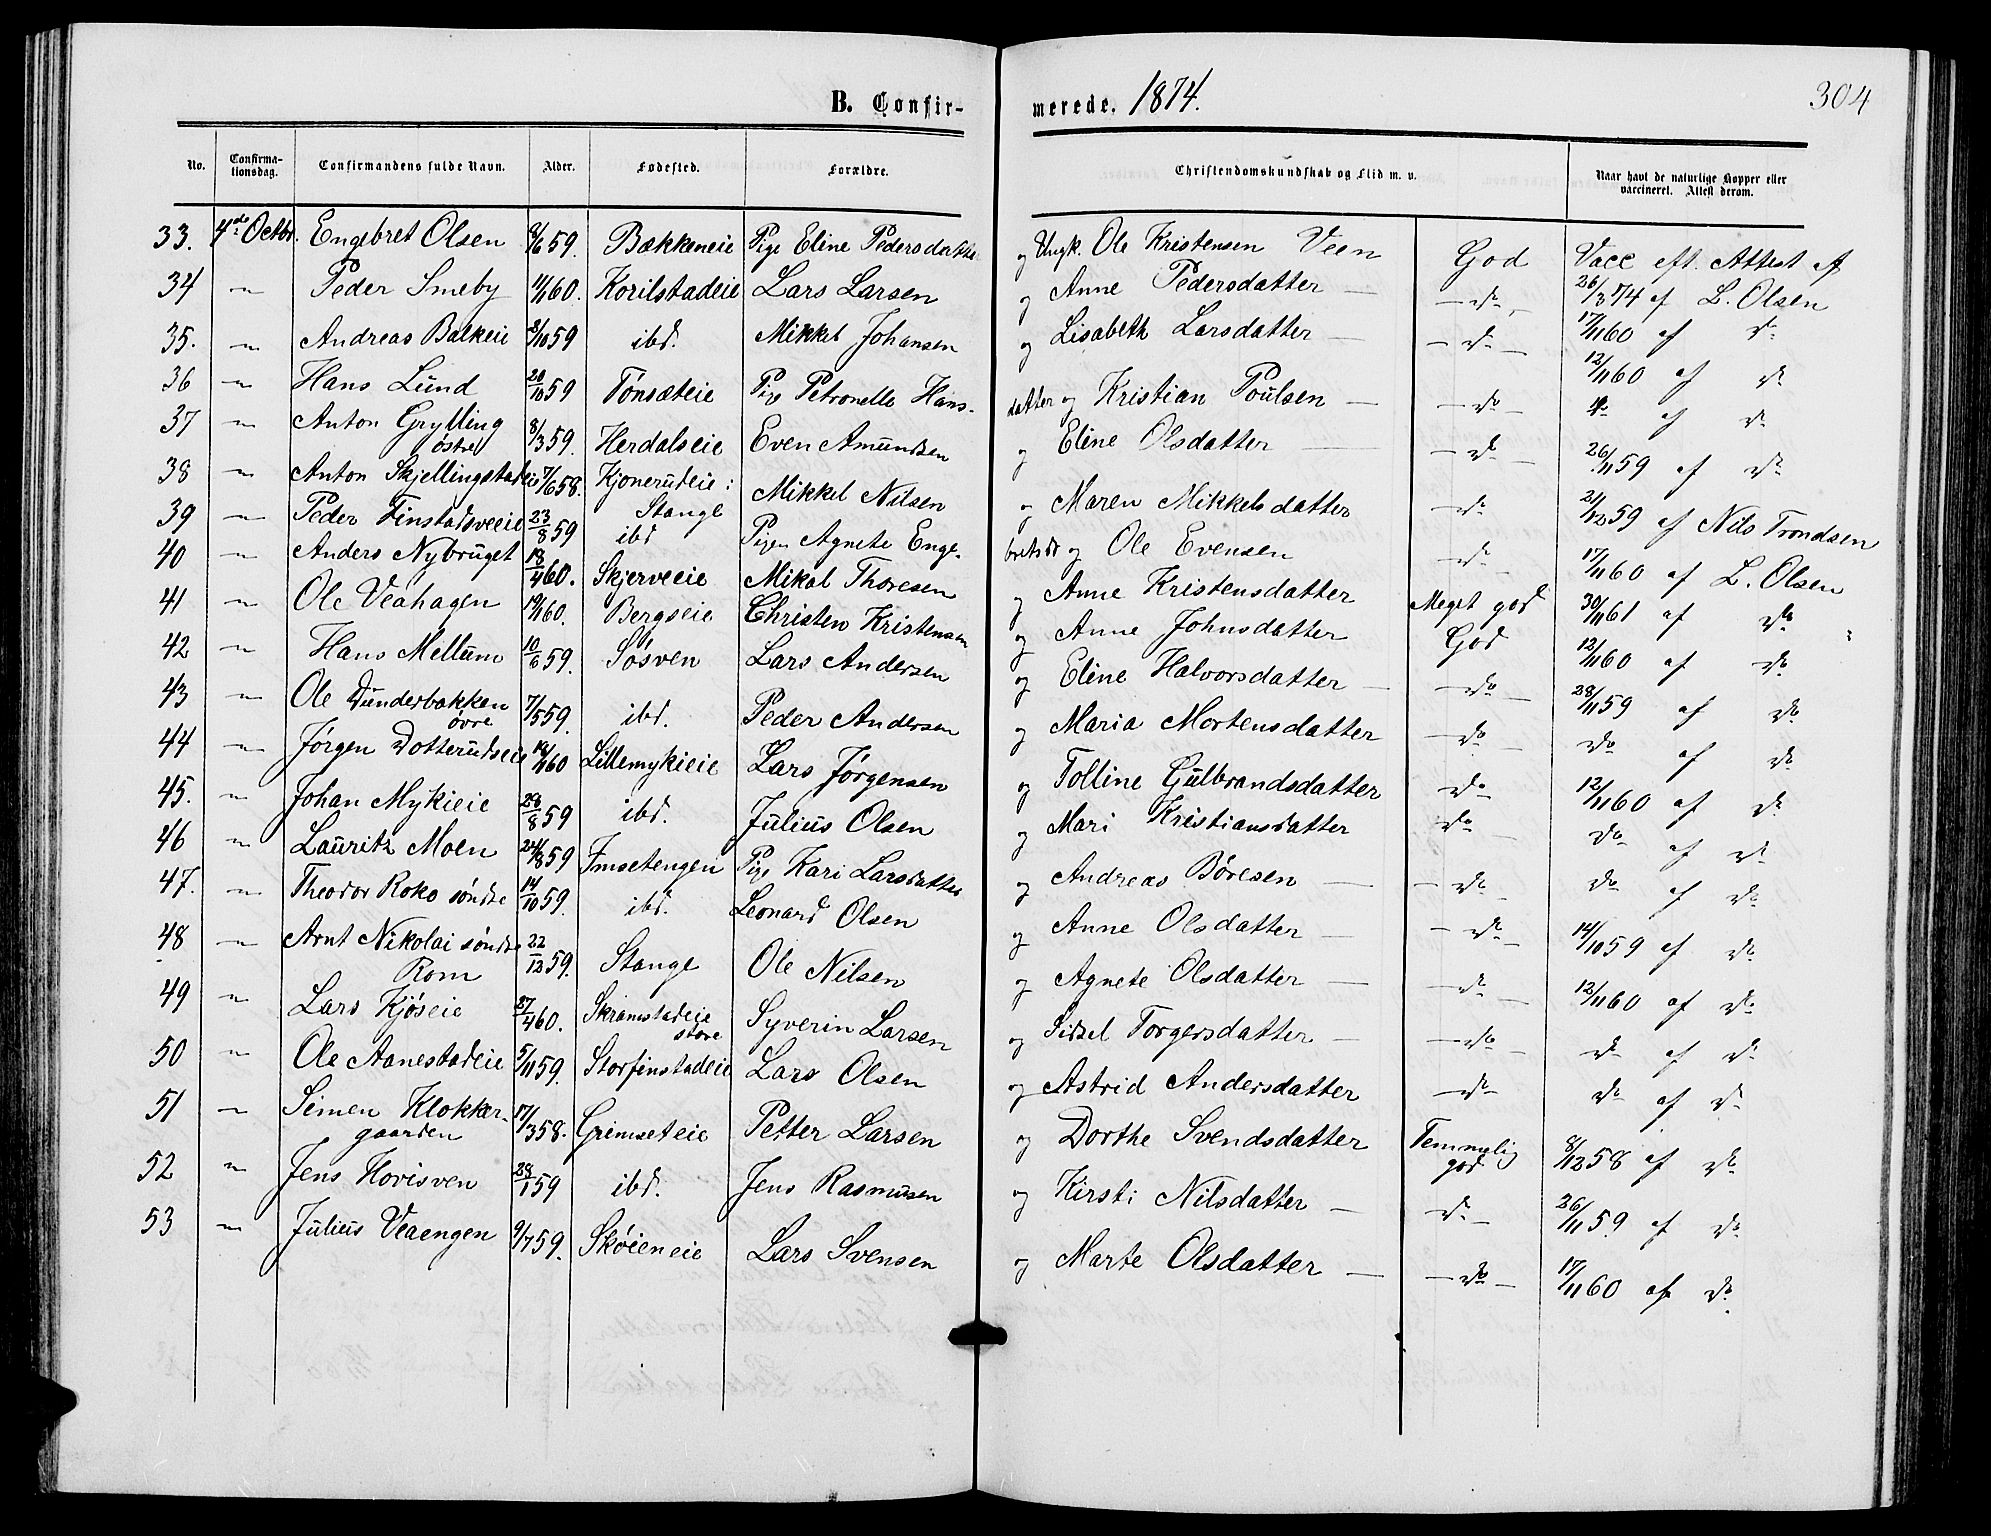 B. Confirmerede. 1874.
304
No. Confirmationsdag. Confirmandens fulde Navn. Alder. Fødested. Forældre. Christendomskundskab og Flid m. v. Naar havt de naturlige Kopper eller vaccineret. Attest derom.
33. 4de Octbr. Engebret Olsen 8/6 59. Bækkeneie Pige Eline Pedersdatter og Ungk. Ole Kristensen Veen God Vacc eft. Attest af
34 " Peder Smeby 11/1 60. Korilstadeie Lars Larsen og Anne Pedersdatter — do 26/3 74 af L. Olsen
35. " Andreas Balkeie 2/10 59 ibd. Mikkel Johansen og Lisabeth Larsdatter — do — 17/11 60 af do
36 " Hans Lund 20/10 59 Tønsæteie Pige Petronelle Hansdatter og Kristian Poulsen — do — 12/11 60 af do
37 " Anton Grylling østre 8/3 59. Herdalseie Even Amundsen og Eline Olsdatter — do — do af do
38 " Anton Skjellingstadeie 7/6 58. Kjonerudeie: Stange Mikkel Nilsen og Maren Mikkelsdatter do 26/11 59 af do
39 " Peder Finstadsveeie 23/8 59 ibd Pigen Agnete Engebretsdr og Ole Evensen do 21/12 59 af Nils Trondsen
40 " Anders Nybruget 18/4 60. Skjerveeie Mikal Thoresen og Anne Kristensdatter Meget god 17/11 60 af L. Olsen
41 " Ole Veahagen 19/1 60. Bergseie Christen Kristensen og Anne Johnsdatter God 30/11 61 af do
42 " Hans Mellum 10/6 59. Søsven Lars Andersen og Eline Halvorsdatter — do — 12/11 60 af do
43 " Ole Dunderbakken øvre 7/5 59. ibd. Peder Andersen og Maria Mortensdatter do 28/11 59 af do
44 " Jørgen Dotterudseie 14/1 60 Lillemykieie Lars Jørgensen og Tolline Gulbrandsdatter do do af do
45. " Johan Mykieie 28/8 59 ibd. Julius Olsen og Mari Kristiansdatter do 12/11 60 af do
46 " Lauritz Moen 24/8 59 Imsetengen Pige Kari Larsdatter og Andreas Børesen — do do af do
47. " Theodor Roko søndre 14/10 59. ibd. Leonard Olsen og Anne Olsdatter — do do af do
48 " Arnt Nikolai søndre Rom 22/12 59. Stange Ole Nilsen og Agnete Olsdatter — do — 14/10 59 af do
49 " Lars Kjøseie 27/4 60. Skramstadeie store Syverin Larsen og Sidsel Torgersdatter — do — 12/11 60 af do
50 " Ole Aanestadeie 5/11 59. Storfinstadeie Lars Olsen og Astrid Andersdatter do do af do
51 " Simen Klokkergaarden 17/3 58. Grimseteie Petter Larsen og Dorthe Svendsdatter Temmelig god 8/12 58 af do
52 " Jens Hovisven 28/1 59 ibd. Jens Rasmusen og Kirsti Nilsdatter — do — 26/11 59 af do
53 " Julius Veaengen 9/7 59. Skøieneie Lars Svensen og Marte Olsdatter — do — 17/11 60 af do